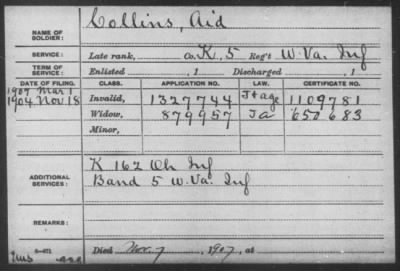 NAME OF SOLDIER: Collins, Aid
SERVICE: Late rank, Co. K, 5 Reg't W. Va. Inf
TERM OF SERVICE: Enlisted , 1 Discharged , 1
DATE OF FILING. CLASS. APPLICATION NO. LAW. CERTIFICATE NO.
1907 Mar 1 Invalid, 1327744 J+age 1109781
1904 Nov 18 Widow, 879957 Ja 650683
Minor,
ADDITIONAL SERVICES: K 162 Oh Inf
Band 5 W. Va. Inf
REMARKS:
Died Nov. 7, 1907, at